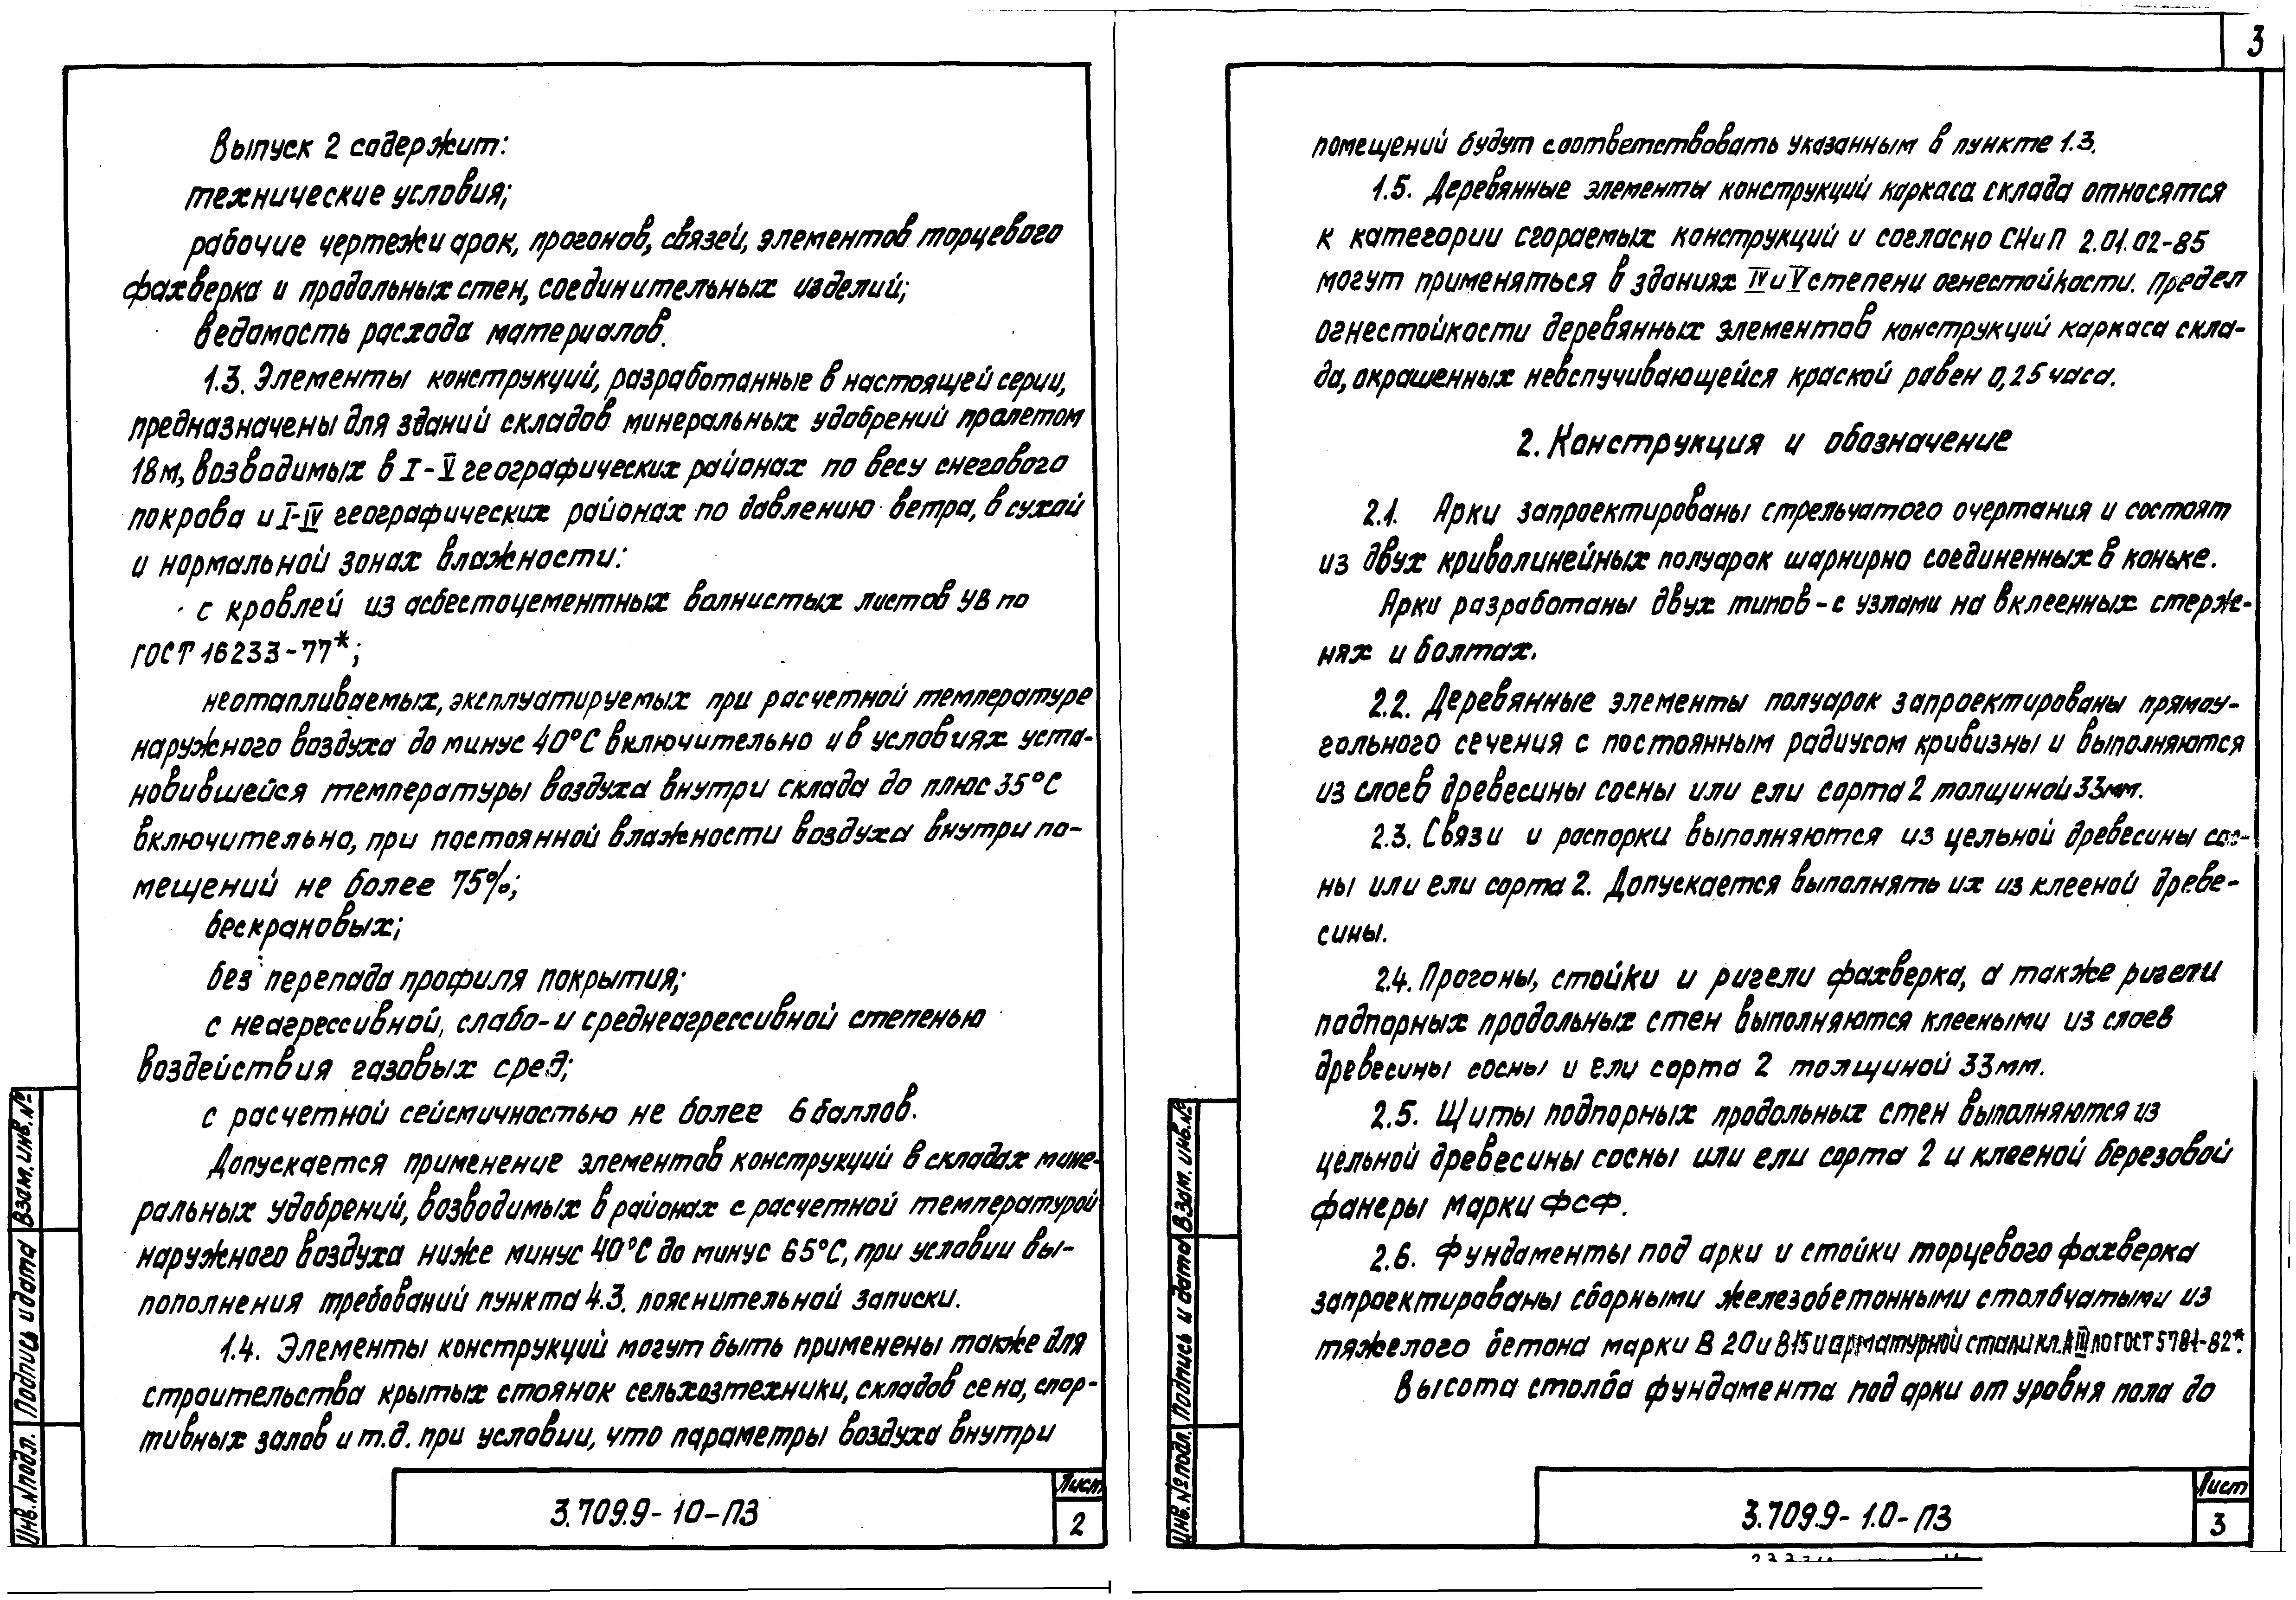 Выпуск 2 содержит:
технические условия;
рабочие чертежи арок, прогонов, связей, элементов торцевого
фахверка и продольных стен, соединительных изделий;
ведомость расхода материалов.
1.3. Элементы конструкций, разработанные в настоящей серии,
предназначены для зданий складов минеральных удобрений пролетом
18м, возводимых в I-V географических районах по весу снегового
покрова и I-IV географических районах по давлению ветра, в сухой
и нормальной зонах влажности:
с кровлей из асбестоцементных волнистых листов УВ по
ГОСТ 16233-77*;
неотапливаемых, эксплуатируемых при расчетной температуре
наружного воздуха до минус 40°С включительно и в условиях уста-
новившейся температуры воздуха внутри склада до плюс 35°С
включительно, при постоянной влажности воздуха внутри по-
мещений не более 75%;
бескрановых;
без перепада профиля покрытия;
с неагрессивной, слабо- и среднеагрессивной степенью
воздействия газовых сред;
с расчетной сейсмичностью не более 6 баллов.
Допускается применение элементов конструкций в складах мине-
ральных удобрений, возводимых в районах с расчетной температурой
наружного воздуха ниже минус 40°С до минус 65°С, при условии вы-
пополнения требований пункта 4.3. пояснительной записки.
1.4. Элементы конструкций могут быть применены также для
строительства крытых стоянок сельхозтехники, складов сена, спор-
тивных залов и т.д. при условии, что параметры воздуха внутри
Инв. № подл. Подпись и дата Взам. инв. №
3.709.9-10-ПЗ
Лист
2
3
помещений будут соответствовать указанным в пункте 1.3.
1.5. Деревянные элементы конструкций каркаса склада относятся
к категории сгораемых конструкций и согласно СНиП 2.01.02-85
могут применяться в зданиях IV и V степени огнестойкости. Предел
огнестойкости деревянных элементов конструкций каркаса скла-
да, окрашенных невспучивающейся краской равен 0,25 часа.
2. Конструкция и обозначение
2.1. Арки запроектированы стрельчатого очертания и состоят
из двух криволинейных полуарок шарнирно соединенных в коньке.
Арки разработаны двух типов - с узлами на вклеенных стерж-
нях и болтах.
2.2. Деревянные элементы полуарок запроектированы прямоу-
гольного сечения с постоянным радиусом кривизны и выполняются
из слоев древесины сосны или ели сорта 2 толщиной 33мм.
2.3. Связи и распорки выполняются из цельной древесины сос-
ны или ели сорта 2. Допускается выполнять их из клееной древе-
сины.
2.4. Прогоны, стойки и ригели фахверка, а также ригели
подпорных продольных стен выполняются клееными из слоев
древесины сосны и ели сорта 2 толщиной 33мм.
2.5. Щиты подпорных продольных стен выполняются из
цельной древесины сосны или ели сорта 2 и клееной березовой
фанеры марки ФСФ.
2.6. Фундаменты под арки и стойки торцевого фахверка
запроектированы сборными железобетонными столбчатыми из
тяжелого бетона марки В 20 и В15 и арматурной стали кл. А III по ГОСТ 5781-82*.
Высота столба фундамента под арки от уровня пола до
Инв. № подл. Подпись и дата Взам. инв. №
3.709.9-1.0-ПЗ
Лист
3